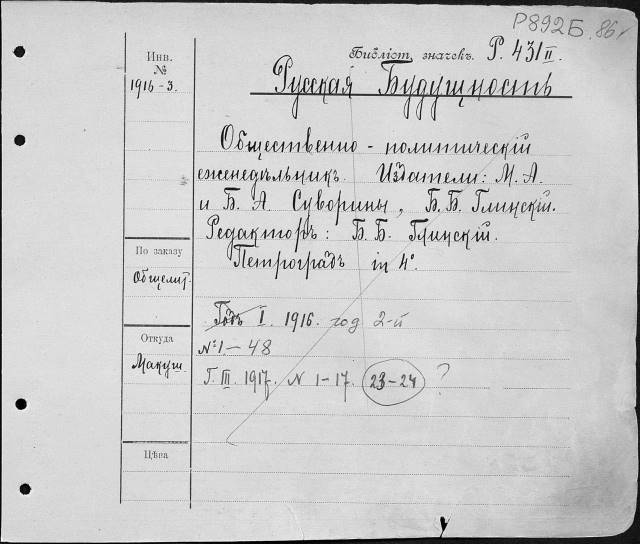 Р892Б 86г
Инв.
№
1916-3.
Библіот. значекъ. Р. 431 II.
Русская Будущность
Общественно-политическій
еженедѣльникъ. Издатели: М. А.
и Б. А. Суворины, Б. Б. Глинскій.
Редакторъ: Б. Б. Глинскій.
Петроградъ in 4°.
По заказу
Общелит.
Годъ I. 1916. год 2-й
№ 1-48
Г. III. 1917. N 1-17. 23-24 ?
Откуда
Макуш.
Цѣна